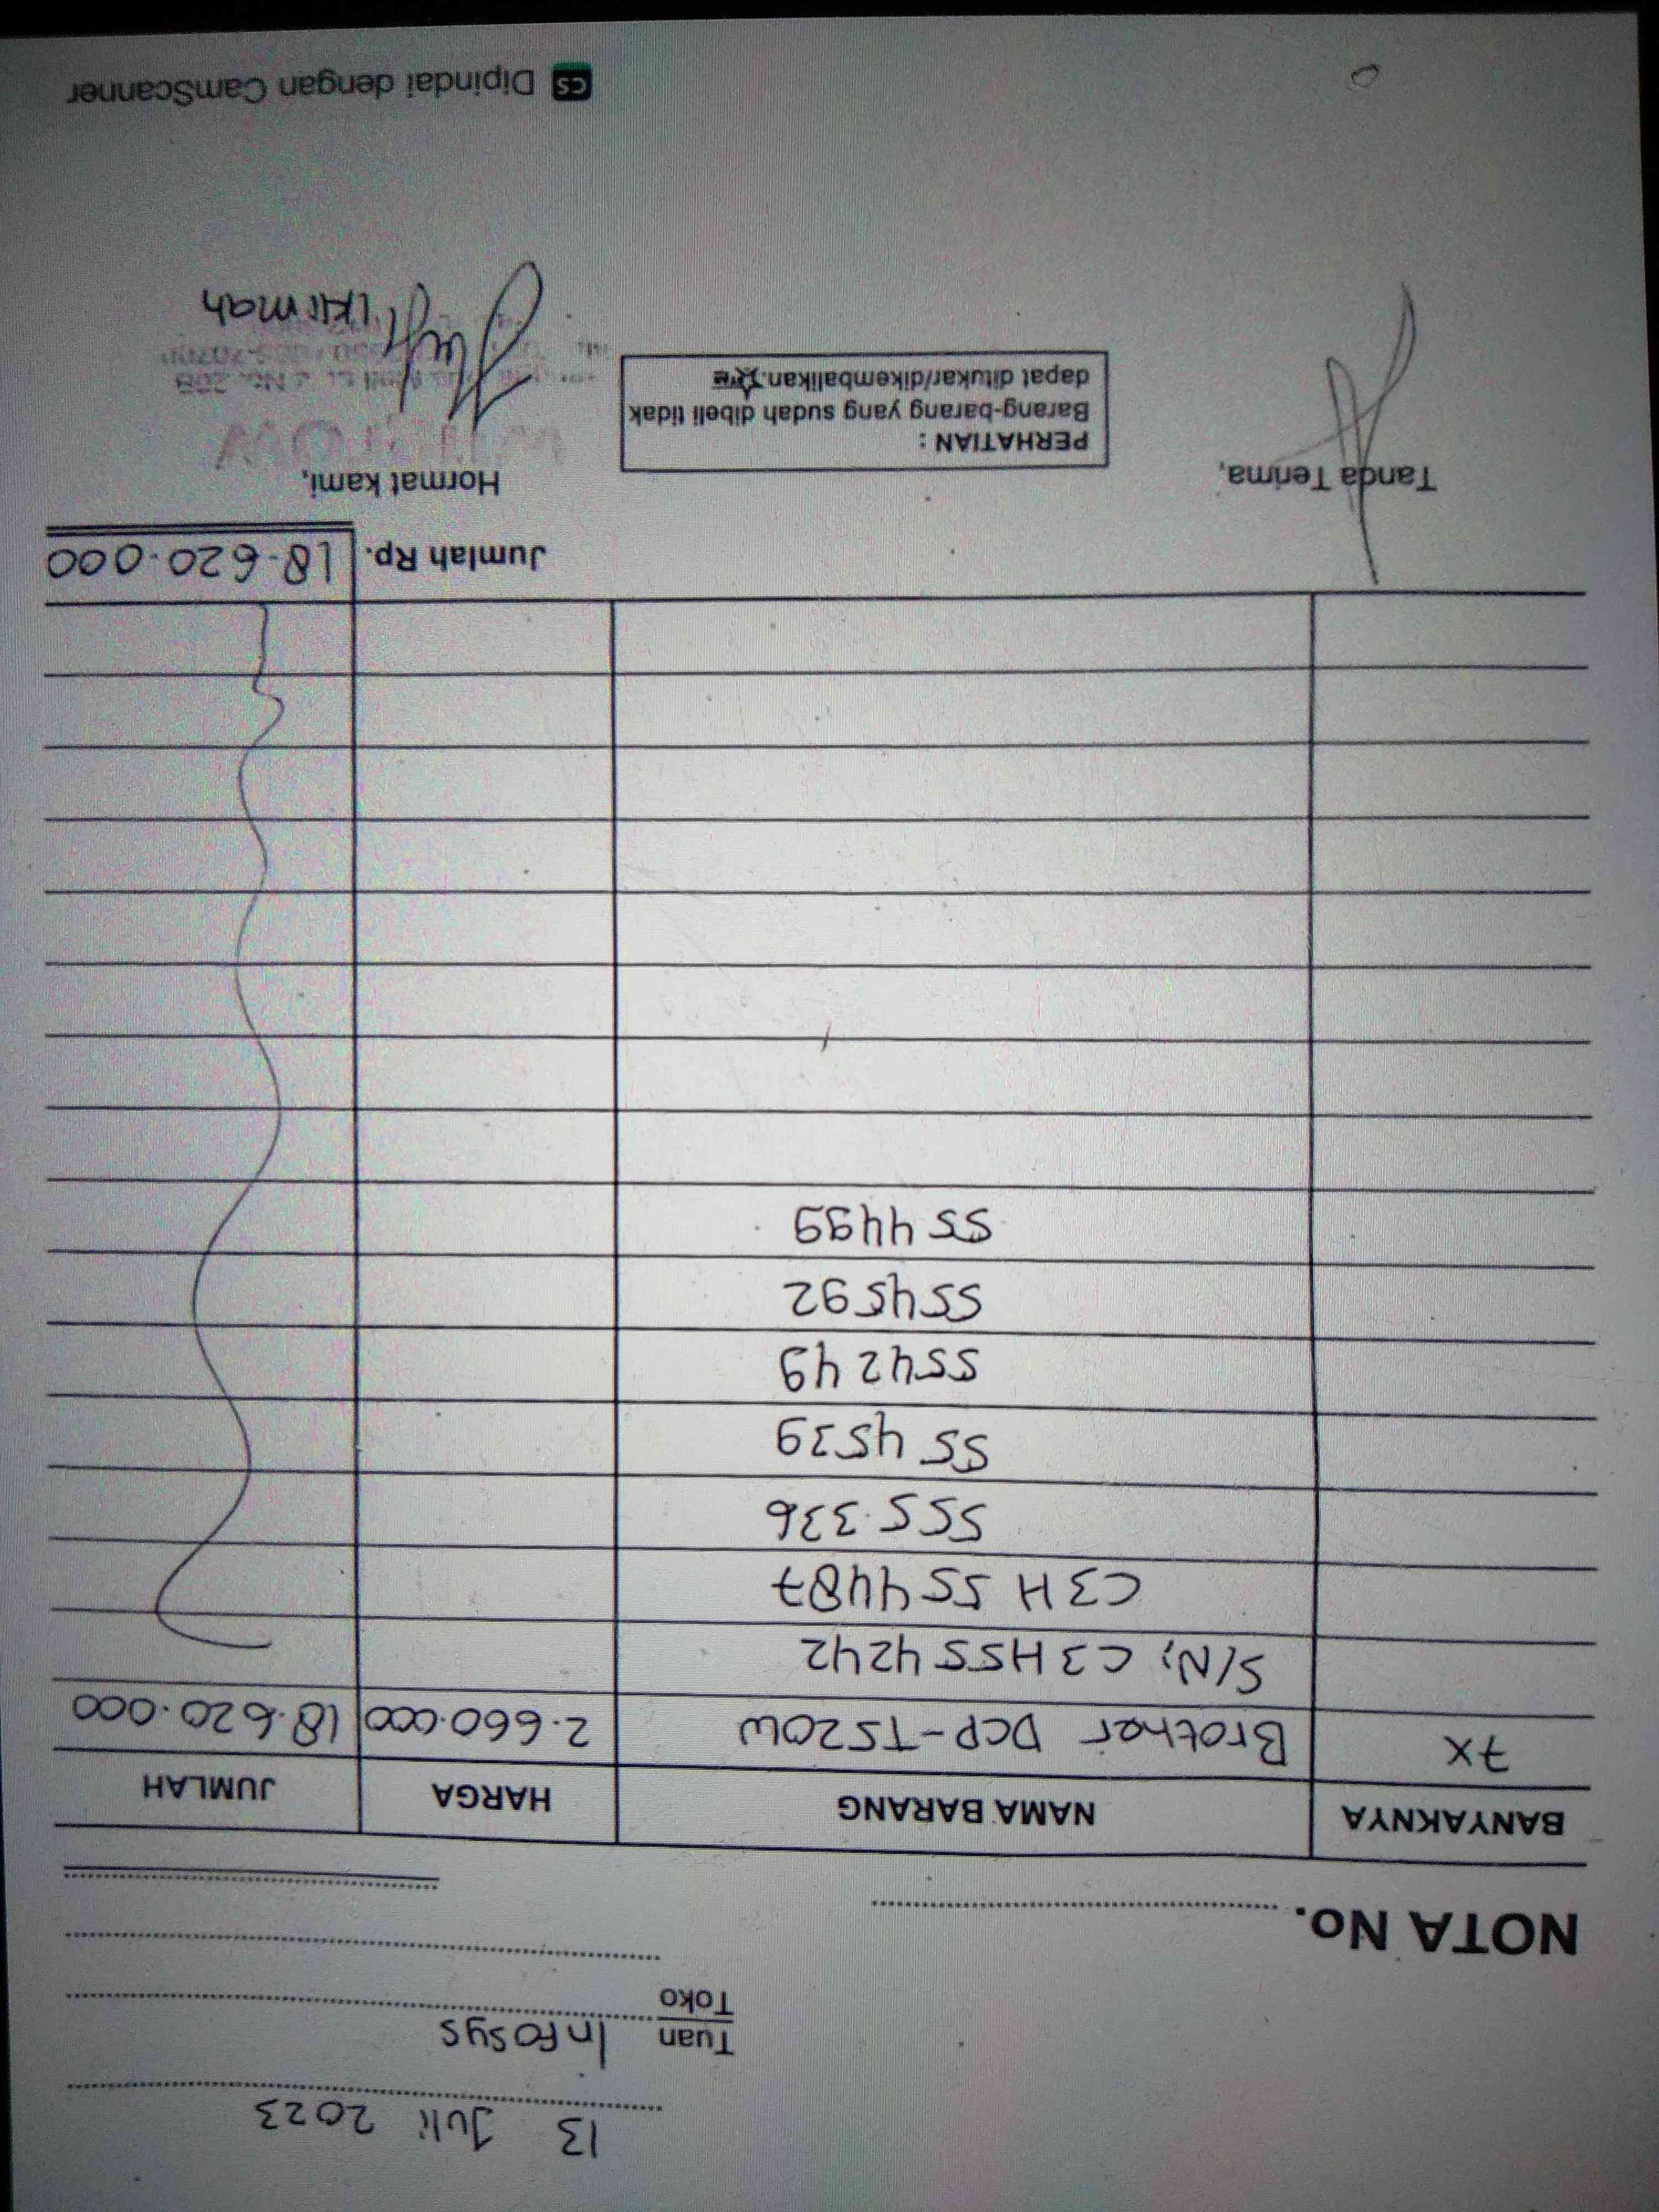 13 Juli 2023
Tuan Infosys
Toko
NOTA No.
BANYAKNYA NAMA BARANG HARGA JUMLAH
7X Brother DCP-T520W 2.660.000 18.620.000
S/N; C3H554242
C3H 554487
555.336
554539
554249
554592
554499
Jumlah Rp. 18.620.000
Tanda Terima,
PERHATIAN :
Barang-barang yang sudah dibeli tidak
dapat ditukar/dikembalikan.
Hormat kami,
CS Dipindai dengan CamScanner